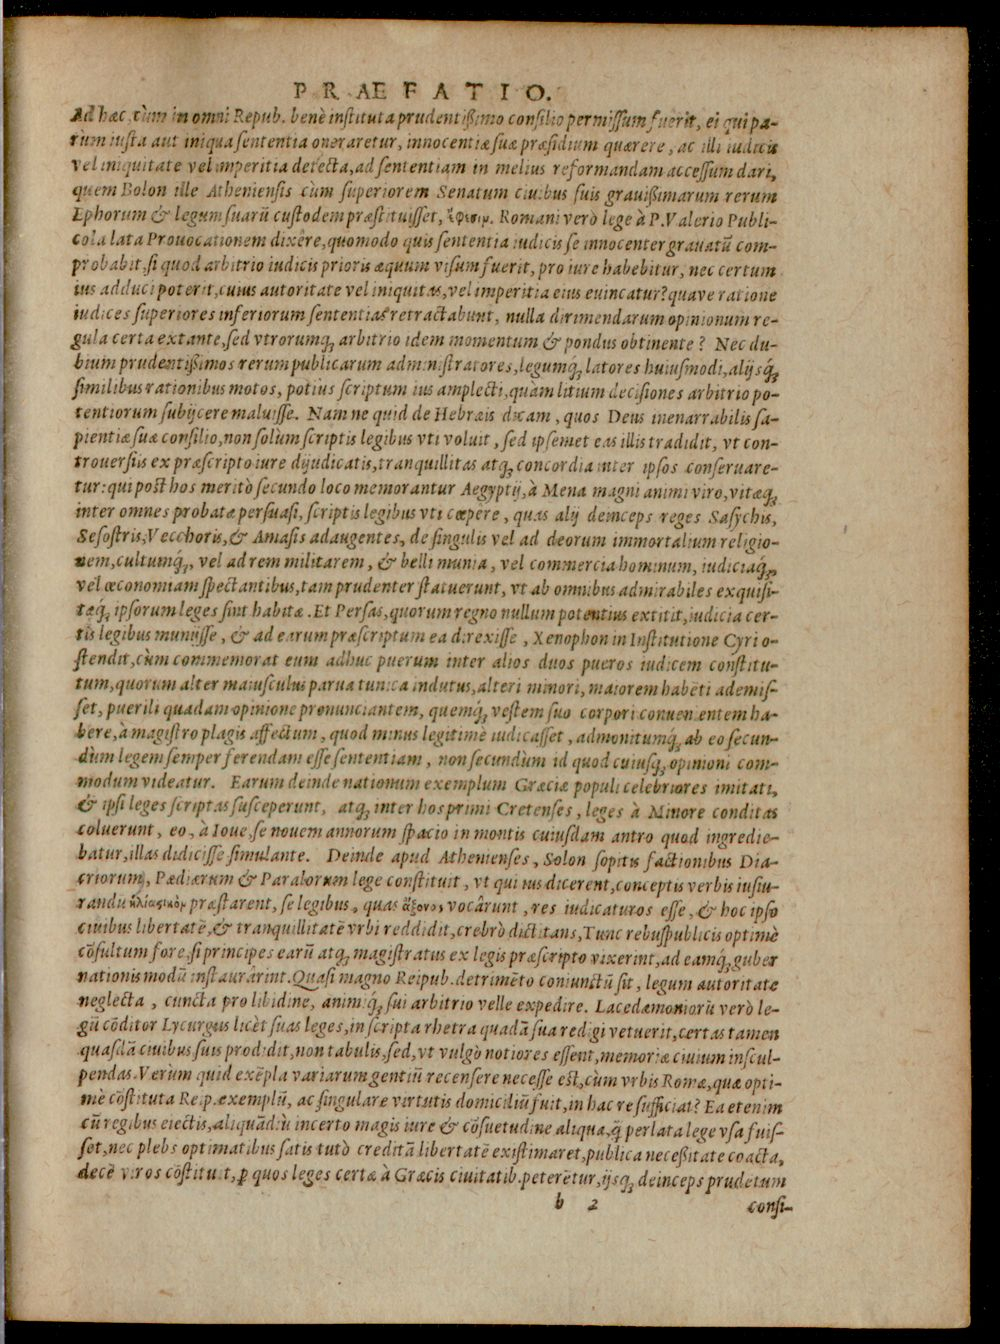 PRÆFATIO.
Ad hæc, cùm in omni Repub. benè instituta prudentißimo consilio permissum fuerit, ei qui pa-
rùm iusta aut iniqua sententia oneraretur, innocentiæ suæ præsidium quærere, ac illi iudicis
vel iniquitate vel imperitia detecta, ad sententiam in melius reformandam accessum dari,
quem Bolon ille Atheniensis cùm superiorem Senatum ciuibus suis grauißimarum rerum
Ephorum & legum suarū custodem præstituisset, ἔφεσιμ. Romani verò lege à P.Valerio Publi-
cola lata Prouocationem dixêre, quomodo quis sententia iudicis se innocenter grauatū com-
probabit, si quod arbitrio iudicis prioris æquum visum fuerit, pro iure habebitur, nec certum
ius adduci poterit, cuius autoritate vel iniquitas, vel imperitia eius euincatur? quave ratione
iudices superiores inferiorum sententias retractabunt, nulla dirimendarum opinionum re-
gula certa extante, sed vtrorumq; arbitrio idem momentum & pondus obtinente? Nec du-
bium prudentißimos rerumpublicarum administratores, legumq; latores huiusmodi, alijsq;
similibus rationibus motos, potius scriptum ius amplecti, quàm litium decisiones arbitrio po-
tentiorum subijcere maluisse. Nam ne quid de Hebræis dicam, quos Deus inenarrabilis sa-
pientiæ suæ consilio, non solùm scriptis legibus vti voluit, sed ipsemet eas illis tradidit, vt con-
trouersiis ex præscripto iure dijudicatis, tranquillitas atq; concordia inter ipsos conseruare-
tur: qui post hos meritò secundo loco memorantur Aegyptij, à Mena magni animi viro, vitæq;
inter omnes probatæ persuasi, scriptis legibus vti cœpere, quas alij deinceps reges Sasychis,
Sesostris, Vecchoris, & Amasis adaugentes, de singulis vel ad deorum immortalium religio-
nem, cultumq;, vel ad rem militarem, & belli munia, vel commercia hominum, iudiciaq;,
vel œconomiam spectantibus, tam prudenter statuerunt, vt ab omnibus admirabiles exquisi-
tæq; ipsorum leges sint habitæ. Et Persas, quorum regno nullum potentius extitit, iudicia cer-
tis legibus munijsse, & ad earum præscriptum ea direxisse, Xenophon in Institutione Cyri o-
stendit, cùm commemorat eum adhuc puerum inter alios duos pueros iudicem constitu-
tum, quorum alter maiusculus parua tunica indutus, alteri minori, maiorem habēti ademis-
set, puerili quadam opinione pronunciantem, quemq; vestem suo corpori conuenientem ha-
bere, à magistro plagis affectum, quod minus legitimè iudicasset, admonitumq; ab eo secun-
dùm legem semper ferendam esse sententiam, non secundùm id quod cuiusq; opinioni com-
modum videatur. Earum deinde nationum exemplum Græciæ populi celebriores imitati,
& ipsi leges scriptas susceperunt, atq; inter hos primi Cretenses, leges à Minore conditas
coluerunt, eo, à Ioue, se nouem annorum spacio in montis cuiusdam antro quod ingredie-
batur, illas didicisse simulante. Deinde apud Athenienses, Solon sopitis factionibus Dia-
criorum, Pædiærum & Paralorum lege constituit, vt qui ius dicerent, conceptis verbis iusiu-
randū ἡλιασικὸμ præstarent, se legibus, quas ἄξονας vocârunt, res iudicaturos esse, & hoc ipso
ciuibus libertatē, & tranquillitatē vrbi reddidit, crebrò dictitans, Tunc rebuspublicis optimè
cōsultum fore, si principes earū atq; magistratus ex legis præscripto vixerint, ad eamq; guber
nationis modū instaurârint. Quasi magno Reipub. detrimēto coniunctū sit, legum autoritate
neglecta, cuncta pro libidine, animiq; sui arbitrio velle expedire. Lacedæmoniorū verò le-
gū cōditor Lycurgus licèt suas leges, in scripta rhetra quadā sua redigi vetuerit, certas tamen
quasdā ciuibus suis prodidit, non tabulis, sed, vt vulgò notiores essent, memoriæ ciuium inscul-
pendas. Verùm quid exēpla variarum gentiū recensere necesse est, cùm vrbis Romæ, quæ opti-
mè cōstituta Reip. exemplū, ac singulare virtutis domiciliū fuit, in hac re sufficiat? Ea etenim
cū regibus eiectis, aliquādiu incerto magis iure & cōsuetudine aliqua, q̄ perlata lege vsa fuis-
set, nec plebs optimatibus satis tutò creditā libertatē existimaret, publica neceßitate coacta,
decē viros cōstituit, ꝑ quos leges certæ à Græcis ciuitatib. peterētur, ijsq; deinceps prudētum
b 2 consi-